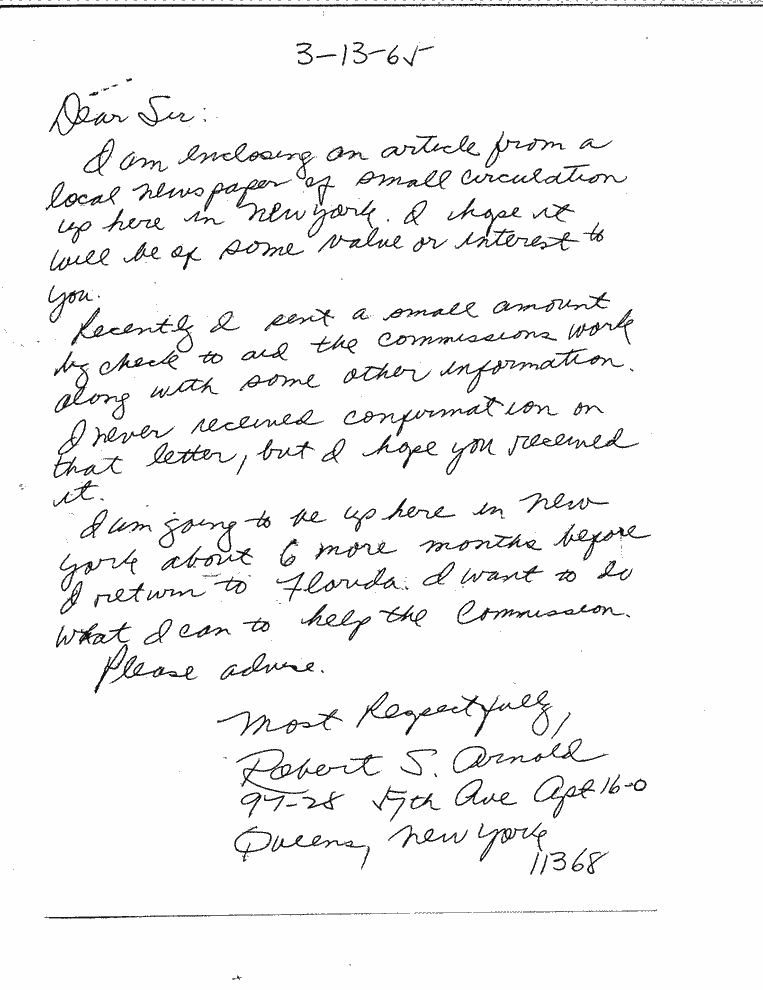 3-13-65
Dear Sir:
I am enclosing an article from a
local newspaper of small circulation
up here in New York. I hope it
will be of some value or interest to
you.
Recently I sent a small amount
by check to aid the commissions work
along with some other information.
I never received confirmation on
that letter, but I hope you received
it.
I am going to be up here in New
York about 6 more months before
I return to Florida. I want to do
what I can to help the Commission.
Please advise.
Most Respectfully,
Robert S. Arnold
97-28 57th Ave Apt 16-O
Queens, New York
11368